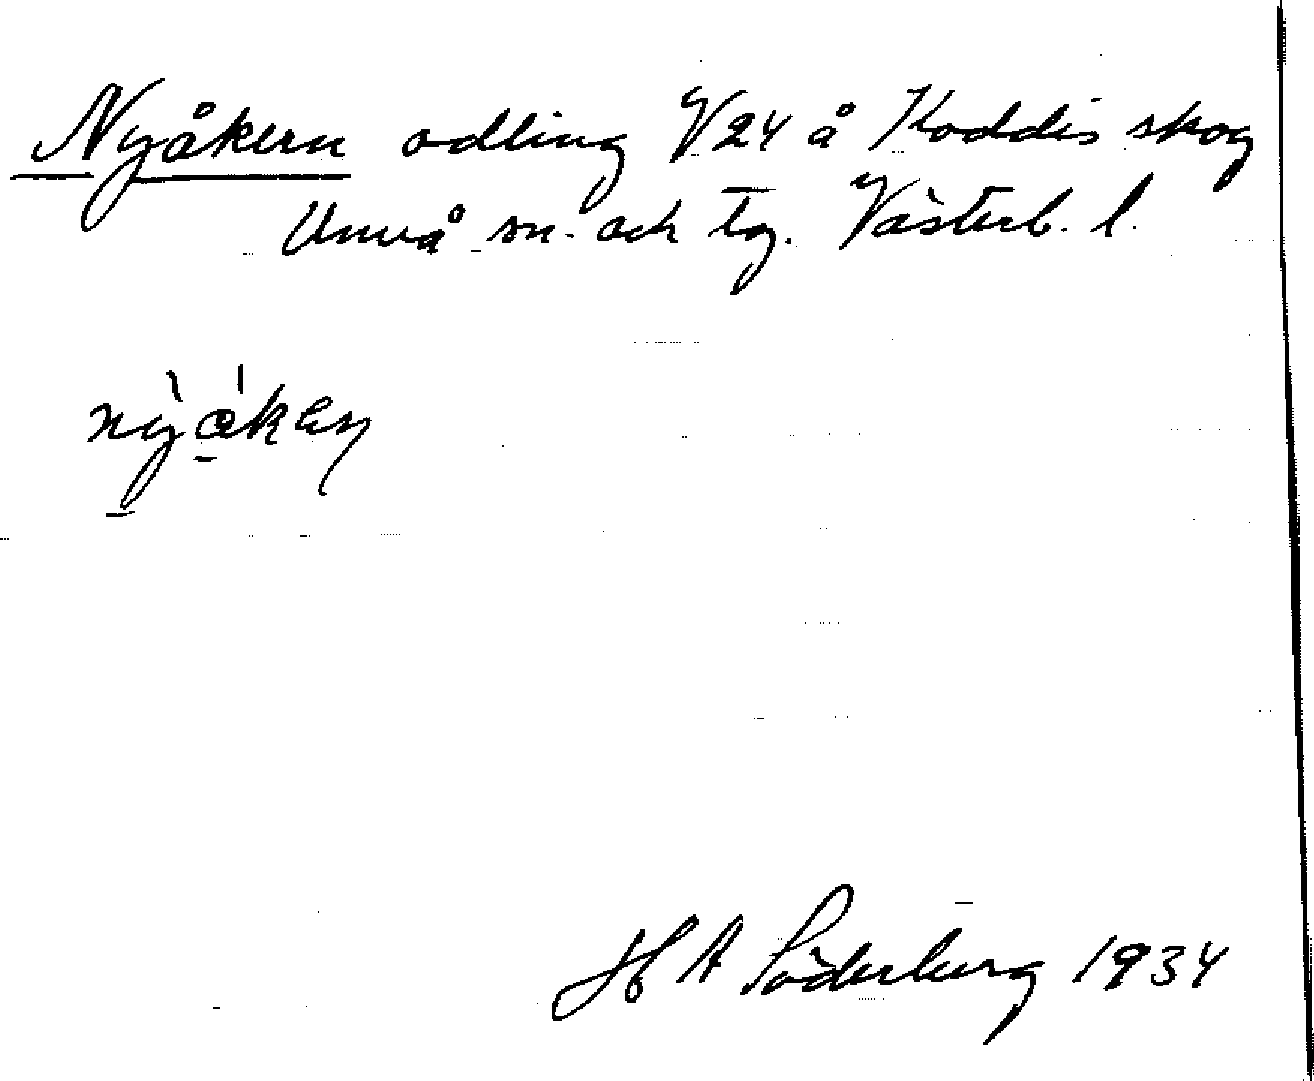 Nyåkern odling V24 å Koddis skog
Umeå sn. och tg. Västerb. l.
nỳåkeŋ
H A Söderberg 1934